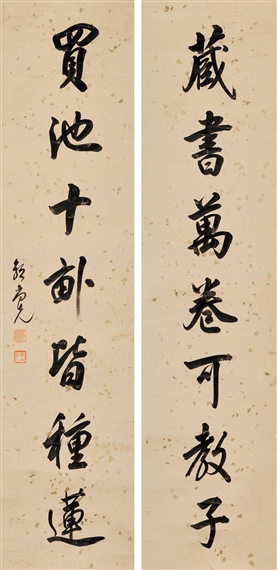 藏書萬卷可教子
買池十畝皆種蓮